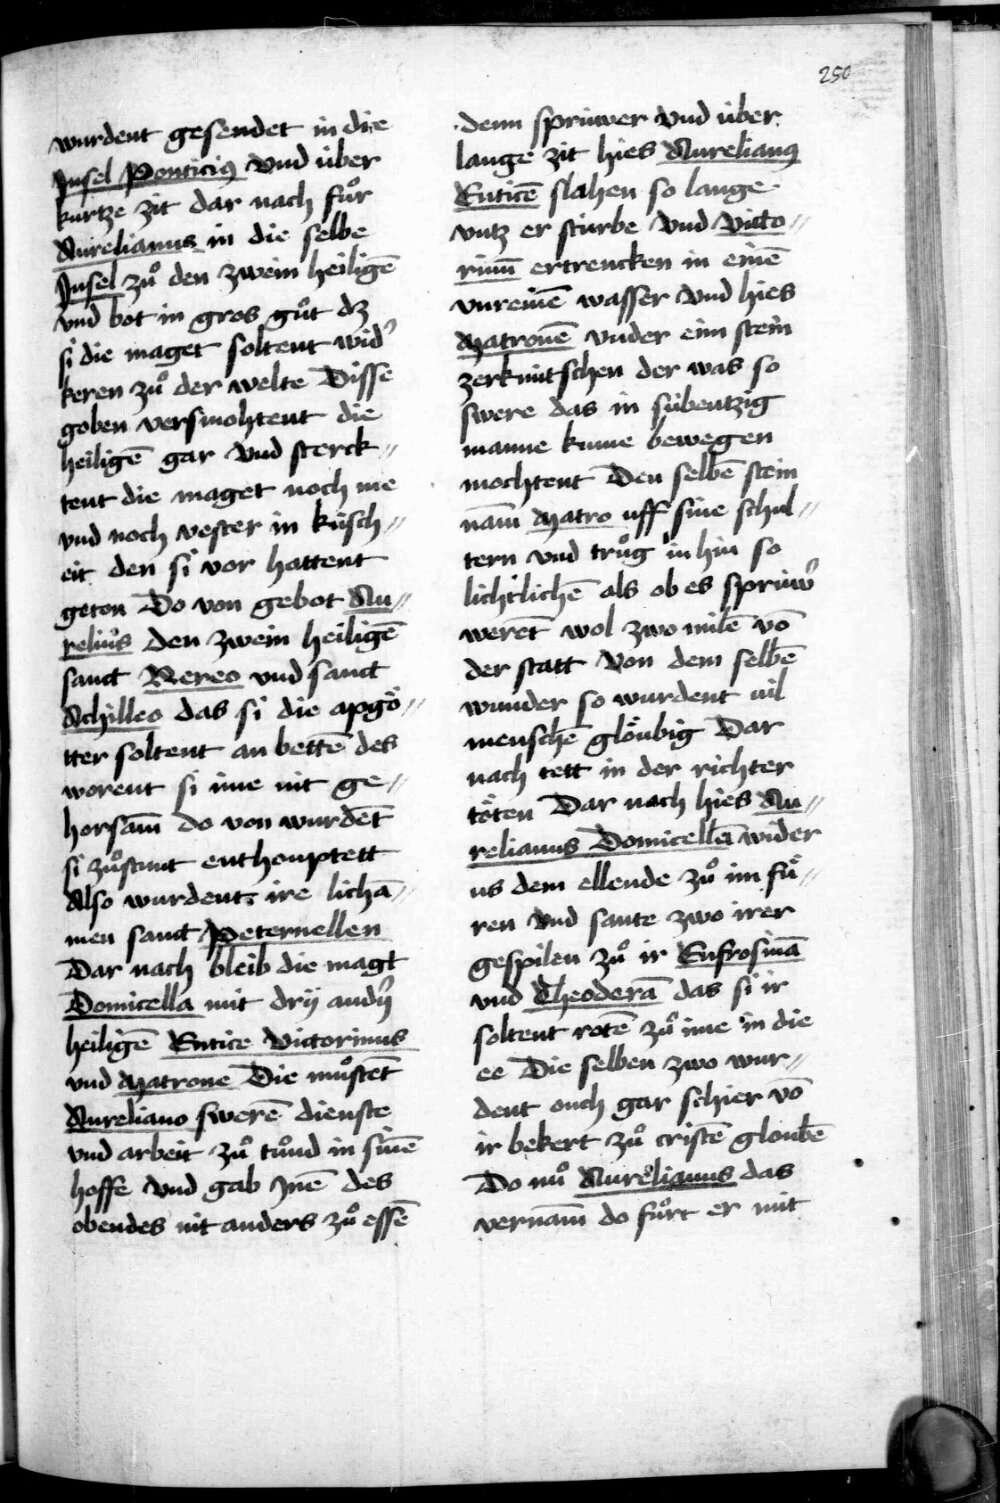 250
wurdent gesendet in die
Insel Ponticiꝰ vnd über
kurtze zit dar nach fuͦr
Aurelianus in die selbe
Insel zuͦ den zwein heiligē
vnd bot in gros guͦt dz
si die maget soltent widʾ
keren zuͦ der welte Disse
goben versmohtent die
heiligē gar vnd sterck⸗
tent die maget noch me
vnd noch vester in küsch⸗
eit den si vor hattent
geton Do von gebot Au⸗
reliꝰs den zwein heiligē
sanct Nereo vnd sanct
Achilleo das si die apgoͤ⸗
tter soltent an bettē des
worent si ime nit ge⸗
horsam̄ do von wurdēt
si zuͦstunt enthouptett
Also wurdent ire lichā⸗
men sanct Peternellen
Dar nach bleib die magt
Domicella mit drij andʾn
heiligē Eutice victorinus
vnd Matrone Die muͦstēt
Aureliano swerē dienste
vnd arbeit zuͦ tuͦnd in sinē
hoffe vnd gab Inē des
obendes nit anders zuͦ essē
denn spriuwer vnd über
lange zit hies Aurelianꝰ
Euticē slahen so lange
vntz er sturbe vnd victo⸗
rinū ertrencken in einē
vnreinē wasser vnd hies
Matronē vnder eim stein
zerknitschen der was so
swere das in sübentzig
manne kume bewegen
mochtent Den selbē stein
nam̄ Matro uff sine schul⸗
tern vnd truͦg in hin so
lichtlichē als ob es spriuwʾ
werēt wol zwo milē vō
der statt Von dem selbē
wunder so wurdent vil
menschē gloͤubig Dar
nach tett in der richter
toͤten Dar nach hies Au⸗
relianus Domicellā wider
us dem ellende zuͦ im fuͤ⸗
ren vnd sante zwo irer
gespilen zuͦ ir Eufrosinā
vnd Theoderā das si ir
soltent rotē zuͦ ime in die
ee Die selben zwo wur⸗
dent ouch gar schier vō
ir bekert zuͦ cristē gloubē
Do nuͦ Aurelianus das
vernam̄ do fuͦrt er mit